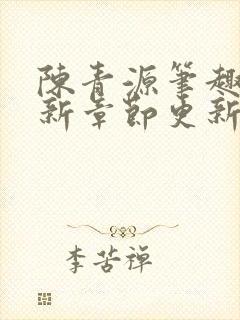 陳青源筆趣
新章節更新
李苦禪